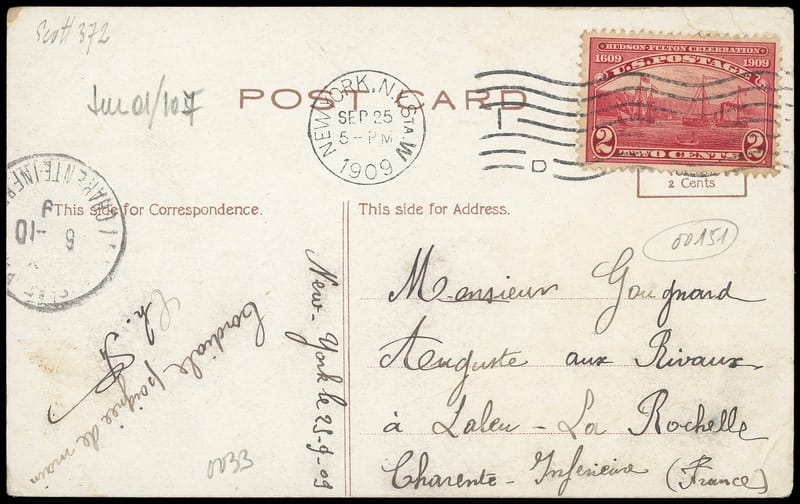 Scott 372
POST CARD
NEW YORK, N.Y. STA. W
SEP 25
5-PM
1909
T
D
HUDSON-FULTON CELEBRATION
1609 1909
U.S. POSTAGE
2 2
TWO CENTS
2 Cents
CHARENTE-INFRE
5 -10
This side for Correspondence.
This side for Address.
00151
Monsieur Gougnard
Auguste aux Rivaux
à Laleu - La Rochelle
Charente - Inférieure (France)
New-York le 25-9-09
Cordiale poignée de main
Ch.
0033